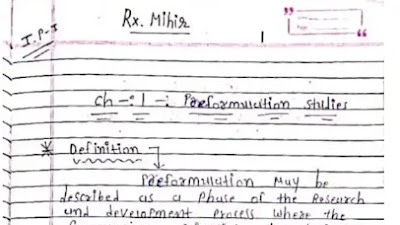 Rx. Mihir
I.P-I
Ch -: 1 -: Preformulation studies
* Definition
Preformulation May be
described as a Phase of the Research
and development Process where the